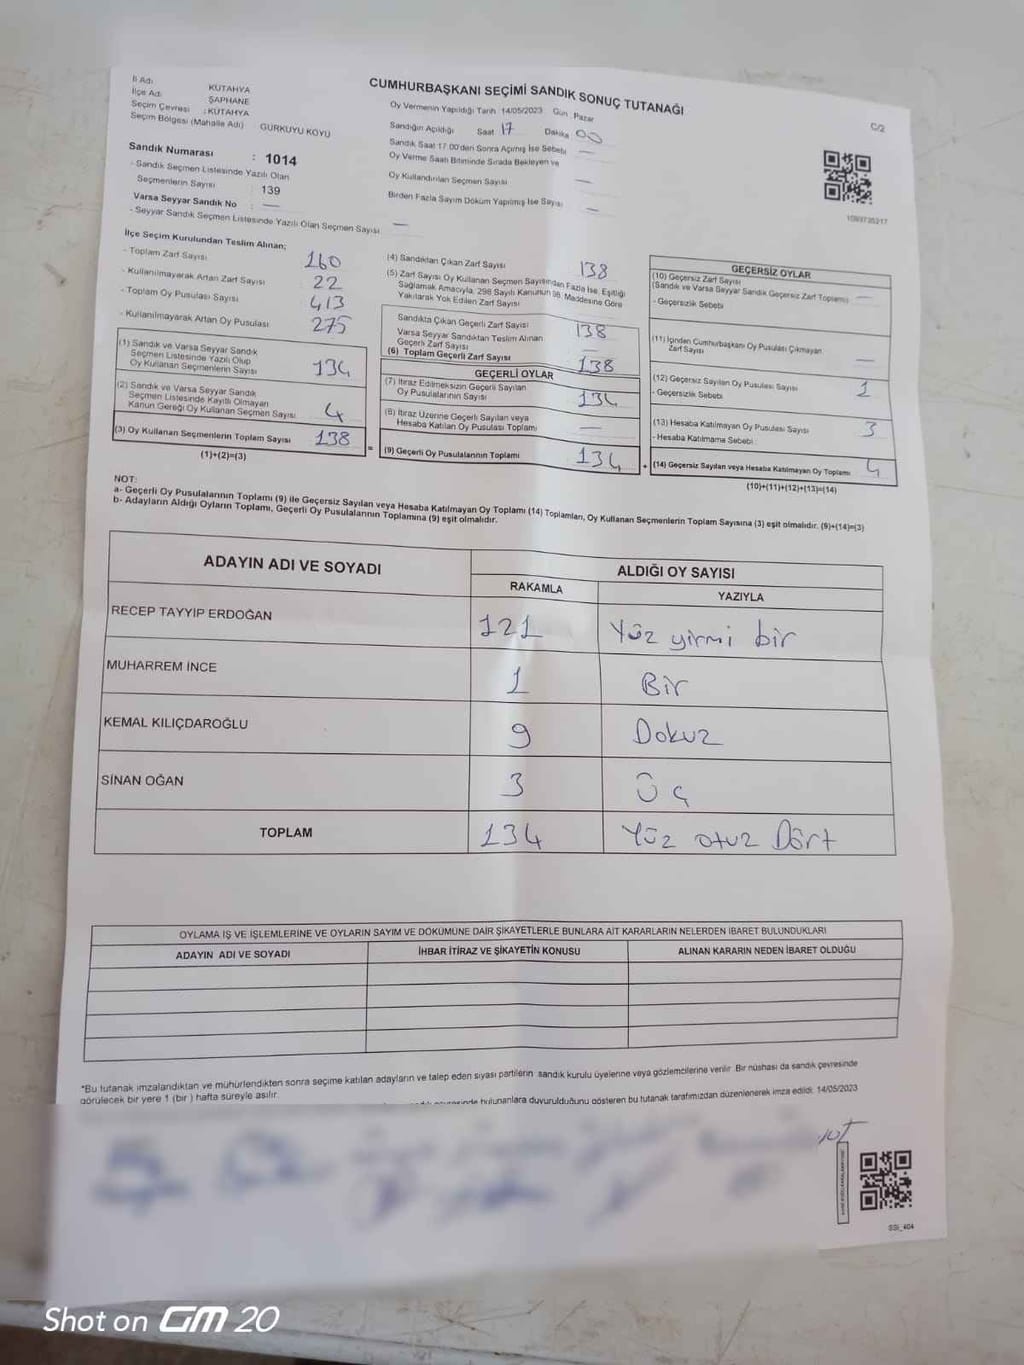 CUMHURBAŞKANI SEÇİMİ SANDIK SONUÇ TUTANAĞI
C/2
İl Adı KÜTAHYA
İlçe Adı ŞAPHANE
Seçim Çevresi : KÜTAHYA
Seçim Bölgesi (Mahalle Adı) GÜRKUYU KÖYÜ
Sandık Numarası : 1014
- Sandık Seçmen Listesinde Yazılı Olan
Seçmenlerin Sayısı : 139
Varsa Seyyar Sandık No : —
- Seyyar Sandık Seçmen Listesinde Yazılı Olan Seçmen Sayısı —
Oy Vermenin Yapıldığı Tarih 14/05/2023 Gün : Pazar
Sandığın Açıldığı Saat 17 Dakika 00
Sandık Saat 17:00'den Sonra Açılmış İse Sebebi —
Oy Verme Saati Bitiminde Sırada Bekleyen ve
Oy Kullandırılan Seçmen Sayısı —
Birden Fazla Sayım Döküm Yapılmış İse Sayısı —
İlçe Seçim Kurulundan Teslim Alınan;
- Toplam Zarf Sayısı 160
- Kullanılmayarak Artan Zarf Sayısı 22
- Toplam Oy Pusulası Sayısı 413
- Kullanılmayarak Artan Oy Pusulası 275
(1) Sandık ve Varsa Seyyar Sandık
Seçmen Listesinde Yazılı Olup
Oy Kullanan Seçmenlerin Sayısı 134
(2) Sandık ve Varsa Seyyar Sandık
Seçmen Listesinde Kayıtlı Olmayan
Kanun Gereği Oy Kullanan Seçmen Sayısı 4
(3) Oy Kullanan Seçmenlerin Toplam Sayısı 138
(1)+(2)=(3)
(4) Sandıktan Çıkan Zarf Sayısı 138
(5) Zarf Sayısı Oy Kullanan Seçmen Sayısından Fazla İse, Eşitliği
Sağlamak Amacıyla, 298 Sayılı Kanunun 98. Maddesine Göre
Yakılarak Yok Edilen Zarf Sayısı
Sandıkta Çıkan Geçerli Zarf Sayısı 138
Varsa Seyyar Sandıktan Teslim Alınan
Geçerli Zarf Sayısı —
(6) Toplam Geçerli Zarf Sayısı 138
GEÇERLİ OYLAR
(7) İtiraz Edilmeksizin Geçerli Sayılan
Oy Pusulalarının Sayısı 134
(8) İtiraz Üzerine Geçerli Sayılan veya
Hesaba Katılan Oy Pusulası Toplamı —
= (9) Geçerli Oy Pusulalarının Toplamı 134
GEÇERSİZ OYLAR
(10) Geçersiz Zarf Sayısı
(Sandık ve Varsa Seyyar Sandık Geçersiz Zarf Toplamı) —
- Geçersizlik Sebebi
(11) İçinden Cumhurbaşkanı Oy Pusulası Çıkmayan
Zarf Sayısı —
(12) Geçersiz Sayılan Oy Pusulası Sayısı 1
- Geçersizlik Sebebi
(13) Hesaba Katılmayan Oy Pusulası Sayısı 3
- Hesaba Katılmama Sebebi
+ (14) Geçersiz Sayılan veya Hesaba Katılmayan Oy Toplamı 4
(10)+(11)+(12)+(13)=(14)
NOT:
a- Geçerli Oy Pusulalarının Toplamı (9) ile Geçersiz Sayılan veya Hesaba Katılmayan Oy Toplamı (14) Toplamları, Oy Kullanan Seçmenlerin Toplam Sayısına (3) eşit olmalıdır. (9)+(14)=(3)
b- Adayların Aldığı Oyların Toplamı, Geçerli Oy Pusulalarının Toplamına (9) eşit olmalıdır.
ADAYIN ADI VE SOYADI ALDIĞI OY SAYISI
RAKAMLA YAZIYLA
RECEP TAYYIP ERDOĞAN 121 Yüz yirmi bir
MUHARREM İNCE 1 Bir
KEMAL KILIÇDAROĞLU 9 Dokuz
SİNAN OĞAN 3 Üç
TOPLAM 134 Yüz otuz Dört
OYLAMA İŞ VE İŞLEMLERİNE VE OYLARIN SAYIM VE DÖKÜMÜNE DAİR ŞİKAYETLERLE BUNLARA AİT KARARLARIN NELERDEN İBARET BULUNDUKLARI
ADAYIN ADI VE SOYADI İHBAR İTİRAZ VE ŞİKAYETİN KONUSU ALINAN KARARIN NEDEN İBARET OLDUĞU
*Bu tutanak imzalandıktan ve mühürlendikten sonra seçime katılan adayların ve talep eden siyasi partilerin sandık kurulu üyelerine veya gözlemcilerine verilir. Bir nüshası da sandık çevresinde
görülecek bir yere 1 (bir ) hafta süreyle asılır.
bulunanlara duyurulduğunu gösteren bu tutanak tarafımızdan düzenlenerek imza edildi. 14/05/2023
SSt_404
Shot on GM 20